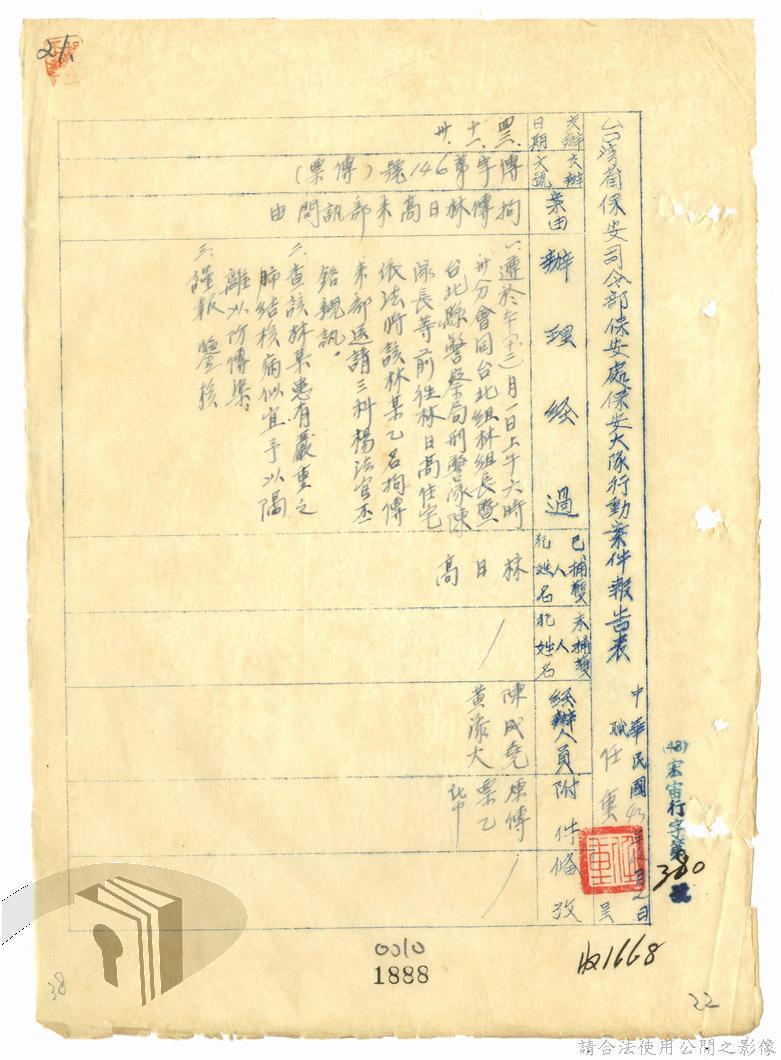 21.
台灣省保安司令部保安處保安大隊行動案件報告表
中華民國43年12月2日
職任重 呈
任重
(43)宏宙行字第380號
交辦日期
四三、十一、卅、
交辦文號
傳字第146號(傳票)
案由
拘傳林日高來部訊問由
辦理經過
一、遵於本(十二)月一日上午六時
卅分會同台北組林組長暨
台北縣警察局刑警隊陳
隊長等前往林日高住宅
依法將該林某乙名拘傳
來部送請三科楊法官丕
銘親訊。
二、查該林某患有嚴重之
肺結核病似宜予以隔
離以防傳染。
三、謹報 鑒核
已捕獲人犯姓名
林日高
未捕獲人犯姓名
/
經辦人員
陳成堯
黃添大
附件
原傳
票乙
紙
備攷
/
0010
1888
收1668
38
22
請合法使用公開之影像